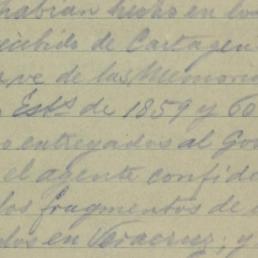 habian hecho en los
recibido de Cartagen
ve de las Memoria
Est.s de 1859 y 60
o entregados al Go
el agente confide
los fragmentos de
dos en Veracruz, y